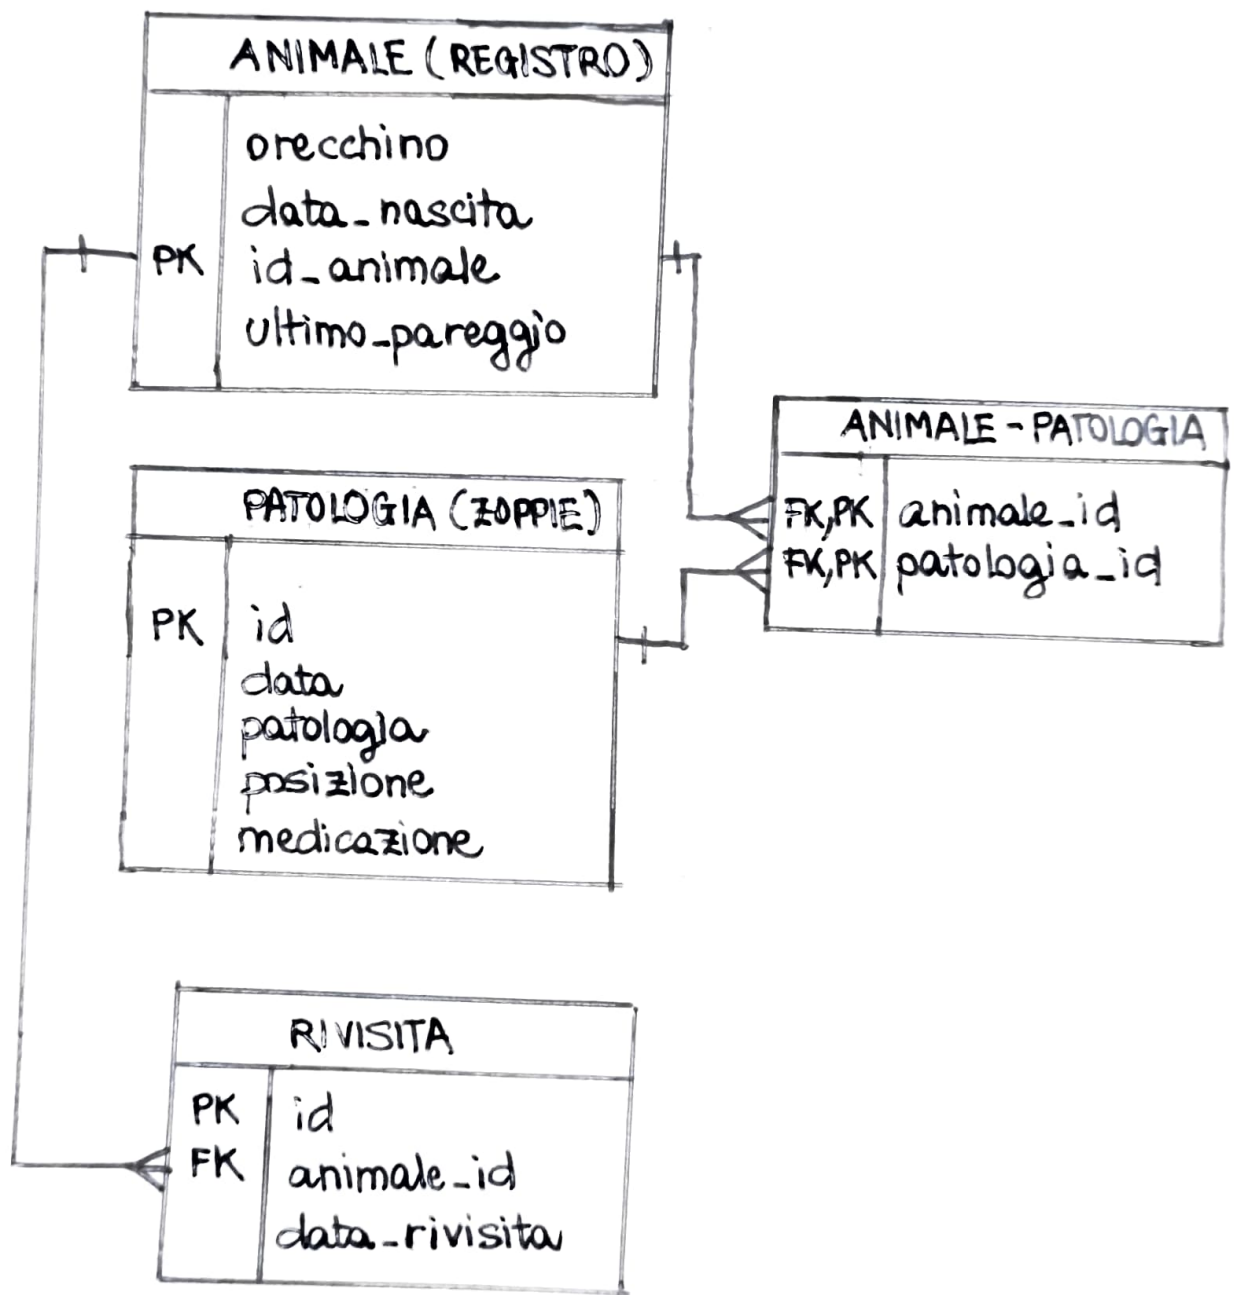 ANIMALE (REGISTRO)
orecchino
data_nascita
PK id_animale
ultimo_pareggio
ANIMALE-PATOLOGIA
FK,PK animale_id
FK,PK patologia_id
PATOLOGIA (ZOPPIE)
PK id
data
patologia
posizione
medicazione
RIVISITA
PK id
FK animale_id
data_rivisita